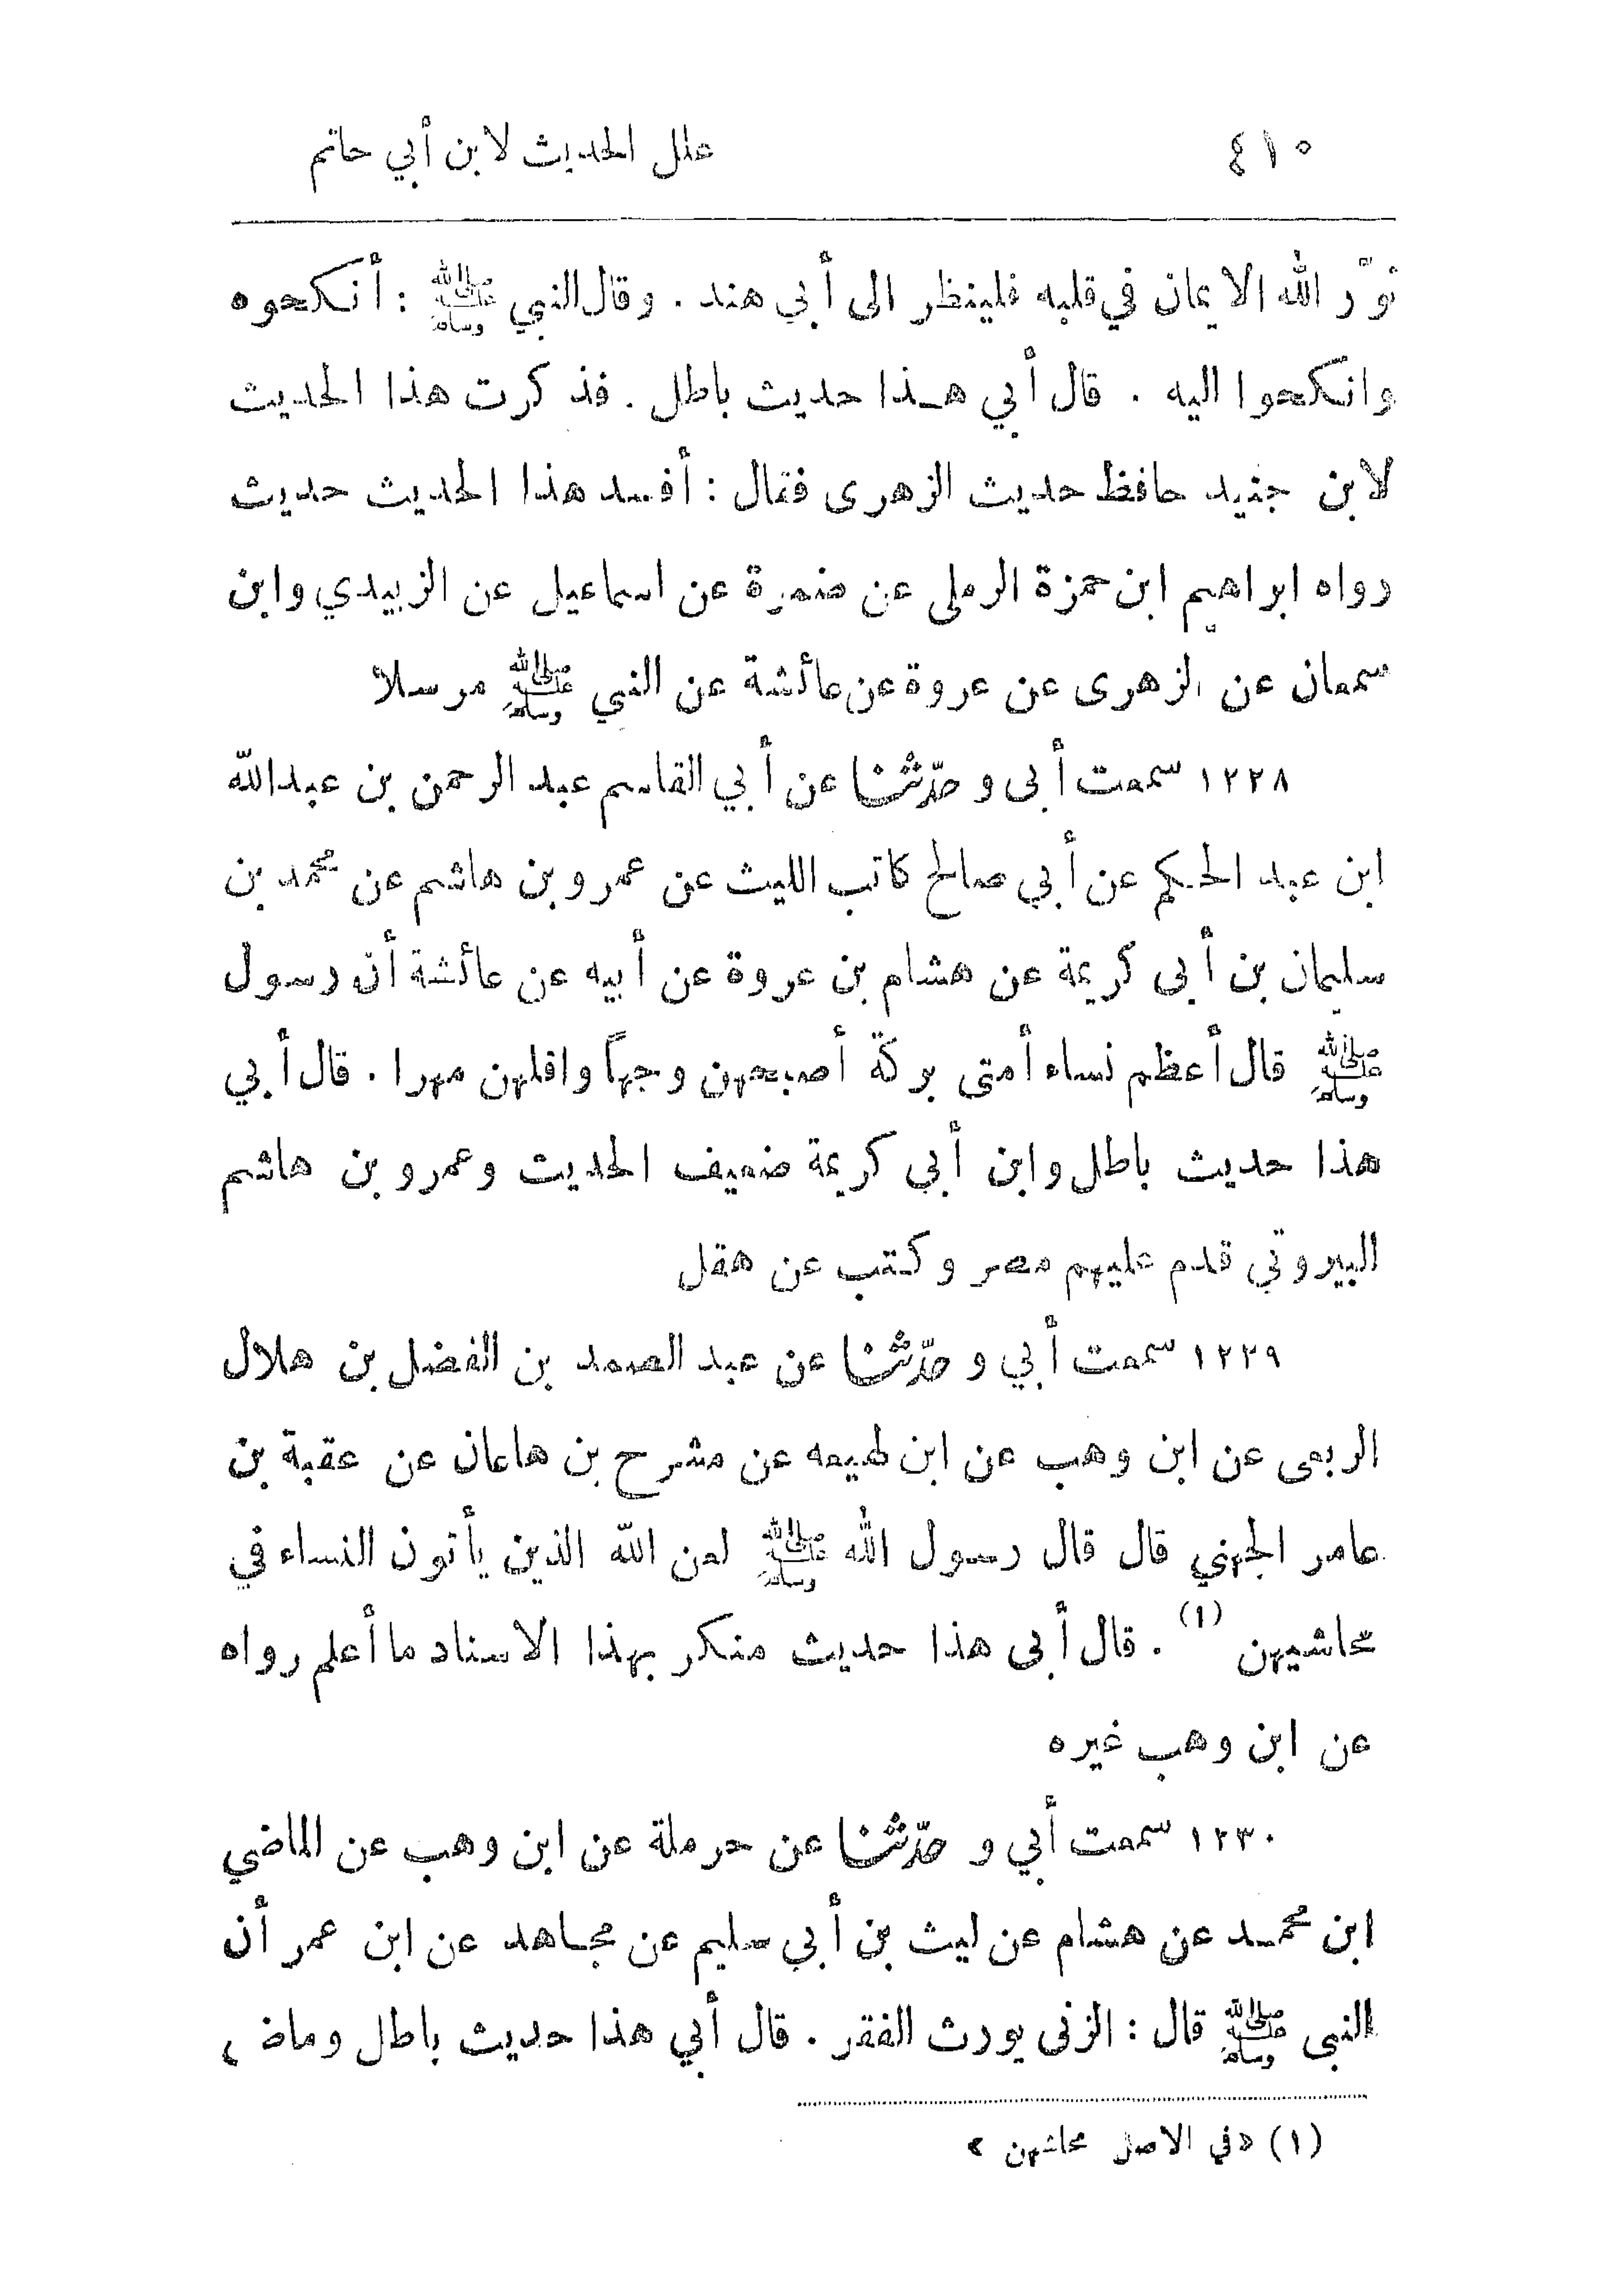 ٤١٠ علل الحديث لابن أبي حاتم
نوّر الله الايمان في قلبه فلينظر الى أبي هند . وقال النبي ﷺ : أنكحوه
وانكحوا اليه . قال أبي هذا حديث باطل . فذكرت هذا الحديث
لابن جنيد حافظ حديث الزهرى فقال : أفسد هذا الحديث حديث
رواه ابراهيم ابن حمزة الرملى عن ضمرة عن اسماعيل عن الزبيدي وابن
سمعان عن الزهرى عن عروة عن عائشة عن النبي ﷺ مرسلا
١٢٢٨ سمعت أبى وحدّثنا عن أبي القاسم عبد الرحمن بن عبدالله
ابن عبد الحكم عن أبي صالح كاتب الليث عن عمرو بن هاشم عن محمد بن
سليمان بن أبى كريمة عن هشام بن عروة عن أبيه عن عائشة أن رسول
ﷺ قال أعظم نساء أمتى بركة أصبحهن وجهاً واقلهن مهرا . قال أبي
هذا حديث باطل وابن أبي كريمة ضعيف الحديث وعمرو بن هاشم
البيروتي قدم عليهم مصر وكتب عن هقل
١٢٢٩ سمعت أبي وحدّثنا عن عبد الصمد بن الفضل بن هلال
الربعى عن ابن وهب عن ابن لهيعه عن مشرح بن هاعان عن عقبة بن
عامر الجهني قال قال رسول الله ﷺ لعن الله الذين يأتون النساء في
محاشيهن (١) . قال أبى هذا حديث منكر بهذا الاسناد ما أعلم رواه
عن ابن وهب غيره
١٢٣٠ سمعت أبي وحدّثنا عن حرملة عن ابن وهب عن الماضي
ابن محمد عن هشام عن ليث بن أبي سليم عن مجاهد عن ابن عمر أن
النبى ﷺ قال : الزنى يورث الفقر . قال أبي هذا حديث باطل وماض ،
(١) « في الاصل محاشهن »